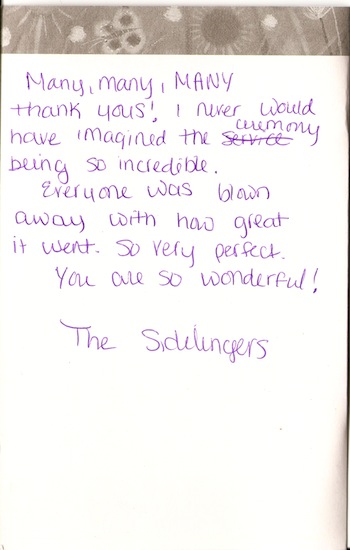 Many, many, MANY
thank yous! I never would
have imagined the ~~service~~ ceremony
being so incredible.
Everyone was blown
away with how great
it went. So very perfect.
You are so wonderful!
The Sidelingers